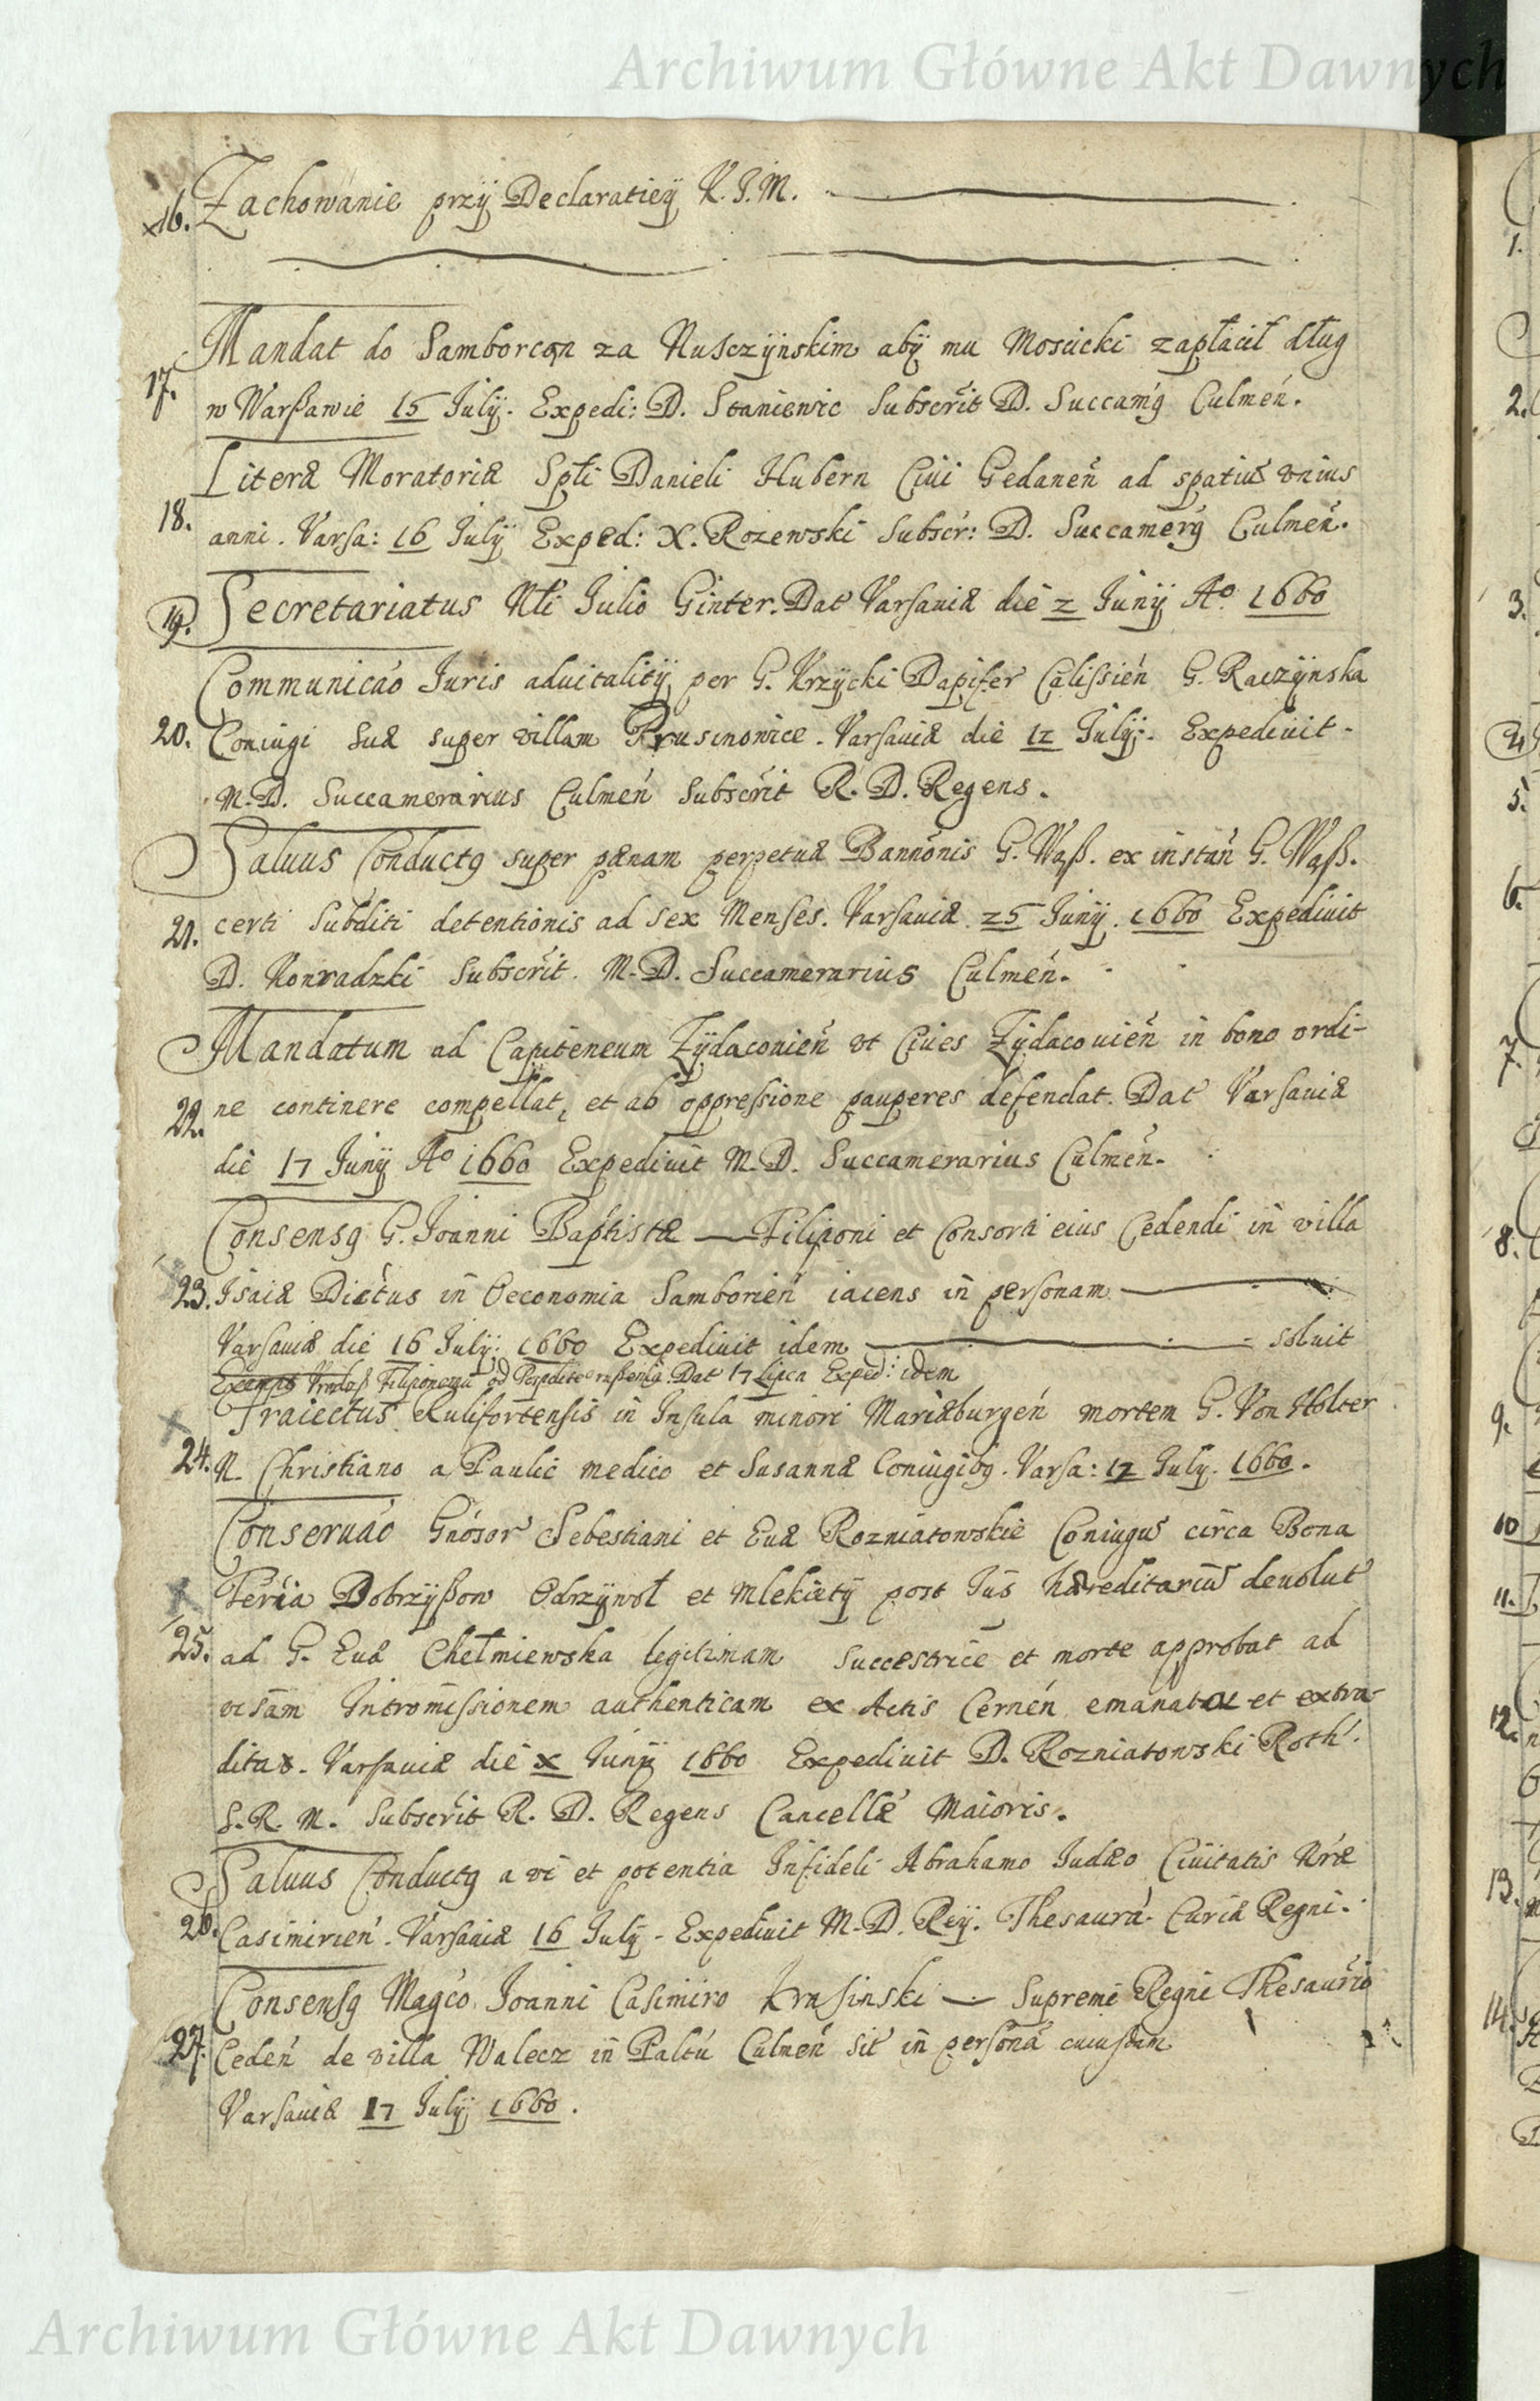 Archiwum Główne Akt Dawnych
16. Zachowanie przy Declaratiey K. J. M.
Mandat do Samborcon za Kusczynskim aby mu Mosucki zapłacił dług
17. w Warßawie 15 July. Expedi: D. Staniewic Subscrit D. Succamg Culmen.
Literæ Moratoriæ Spli Danieli Hubern Ciui Gedanen ad spatiu vnius
18. anni. Varsa: 16 July Exped: X. Rozewski Subscr: D. Succamerg Culmen.
19. Secretariatus Nli Julio Ginter. Dat Varsauiæ die 2 Juny Ao 1660
Communicao Juris aduitality per G. Krzycki Dapifer Calissien G. Raczynska
20. Coniugi Suæ super villam Prusinowice. Varsauiæ die 12 July. Expediuit
M. D. Succamerarius Culmen Subscrit R. D. Regens.
Saluus Conductg super pænam perpetuæ Bannonis G. Waß. ex instan G. Waß.
21. certi Subditi detentionis ad sex Menses. Varsauiæ 25 Juny. 1660 Expediuit
D. Konradzki Subscrit. M. D. Succamerarius Culmen.
Mandatum ad Capiteneum Zydaconien vt Ciues Zydacouien in bono ordi-
22. ne continere compellat, et ab oppressione pauperes defendat. Dat Varsauiæ
die 17 Juny Ao 1660 Expediuit M. D. Succamerarius Culmen.
Consensg G. Joanni Baptistæ — Filiponi et Consorti eius Cedendi in villa
23. Isaiæ Dictus in Oeconomia Samborien iacens in personam —
Varsauiæ die 16 July. 1660 Expediuit idem — soluit
Filiponemu od Dat 17 Lipca Exped: idem
Traiectus Rulifortensis in Insula minori Mariæburgen mortem G. Von Holter
24. N. Christiano a Paulic medico et Susannæ Coniugibg. Varsa: 12 July. 1660.
Conseruao Gnosor Sebestiani et Euæ Rozniatowskie Coniugu circa Bona
Teria Dobrzyßow Odrzywoł et Mlekicty post Jus hæreditariu deuolut
25. ad G. Euæ Chełmiewska legitimam Succestrice et morte approbat ad
visam Intromissionem authenticam ex Actis Cernen emanatæ et extra-
ditas. Varsauiæ die x Juny 1660 Expediuit D. Rozniatowski Roth.
S. R. M. Subscrit R. D. Regens Cancellæ Maioris.
Saluus Conductg a vi et potentia Infideli Abrahamo Judæo Ciuitatis Nræ
26. Casimirien. Varsauiæ 16 July - Expediuit M. D. Rey. Thesaura. Curiæ Regni.
Consensg Magco Joanni Casimiro Krasinski — Supremi Regni Thesaurio
27. Ceden de villa Walecz in Paltu Culmen sit in persona cuiusdam
Varsauiæ 17 July 1660.
1.
2.
3.
4
5.
6.
7.
8.
9.
10
11.
12.
13.
14.
Archiwum Główne Akt Dawnych